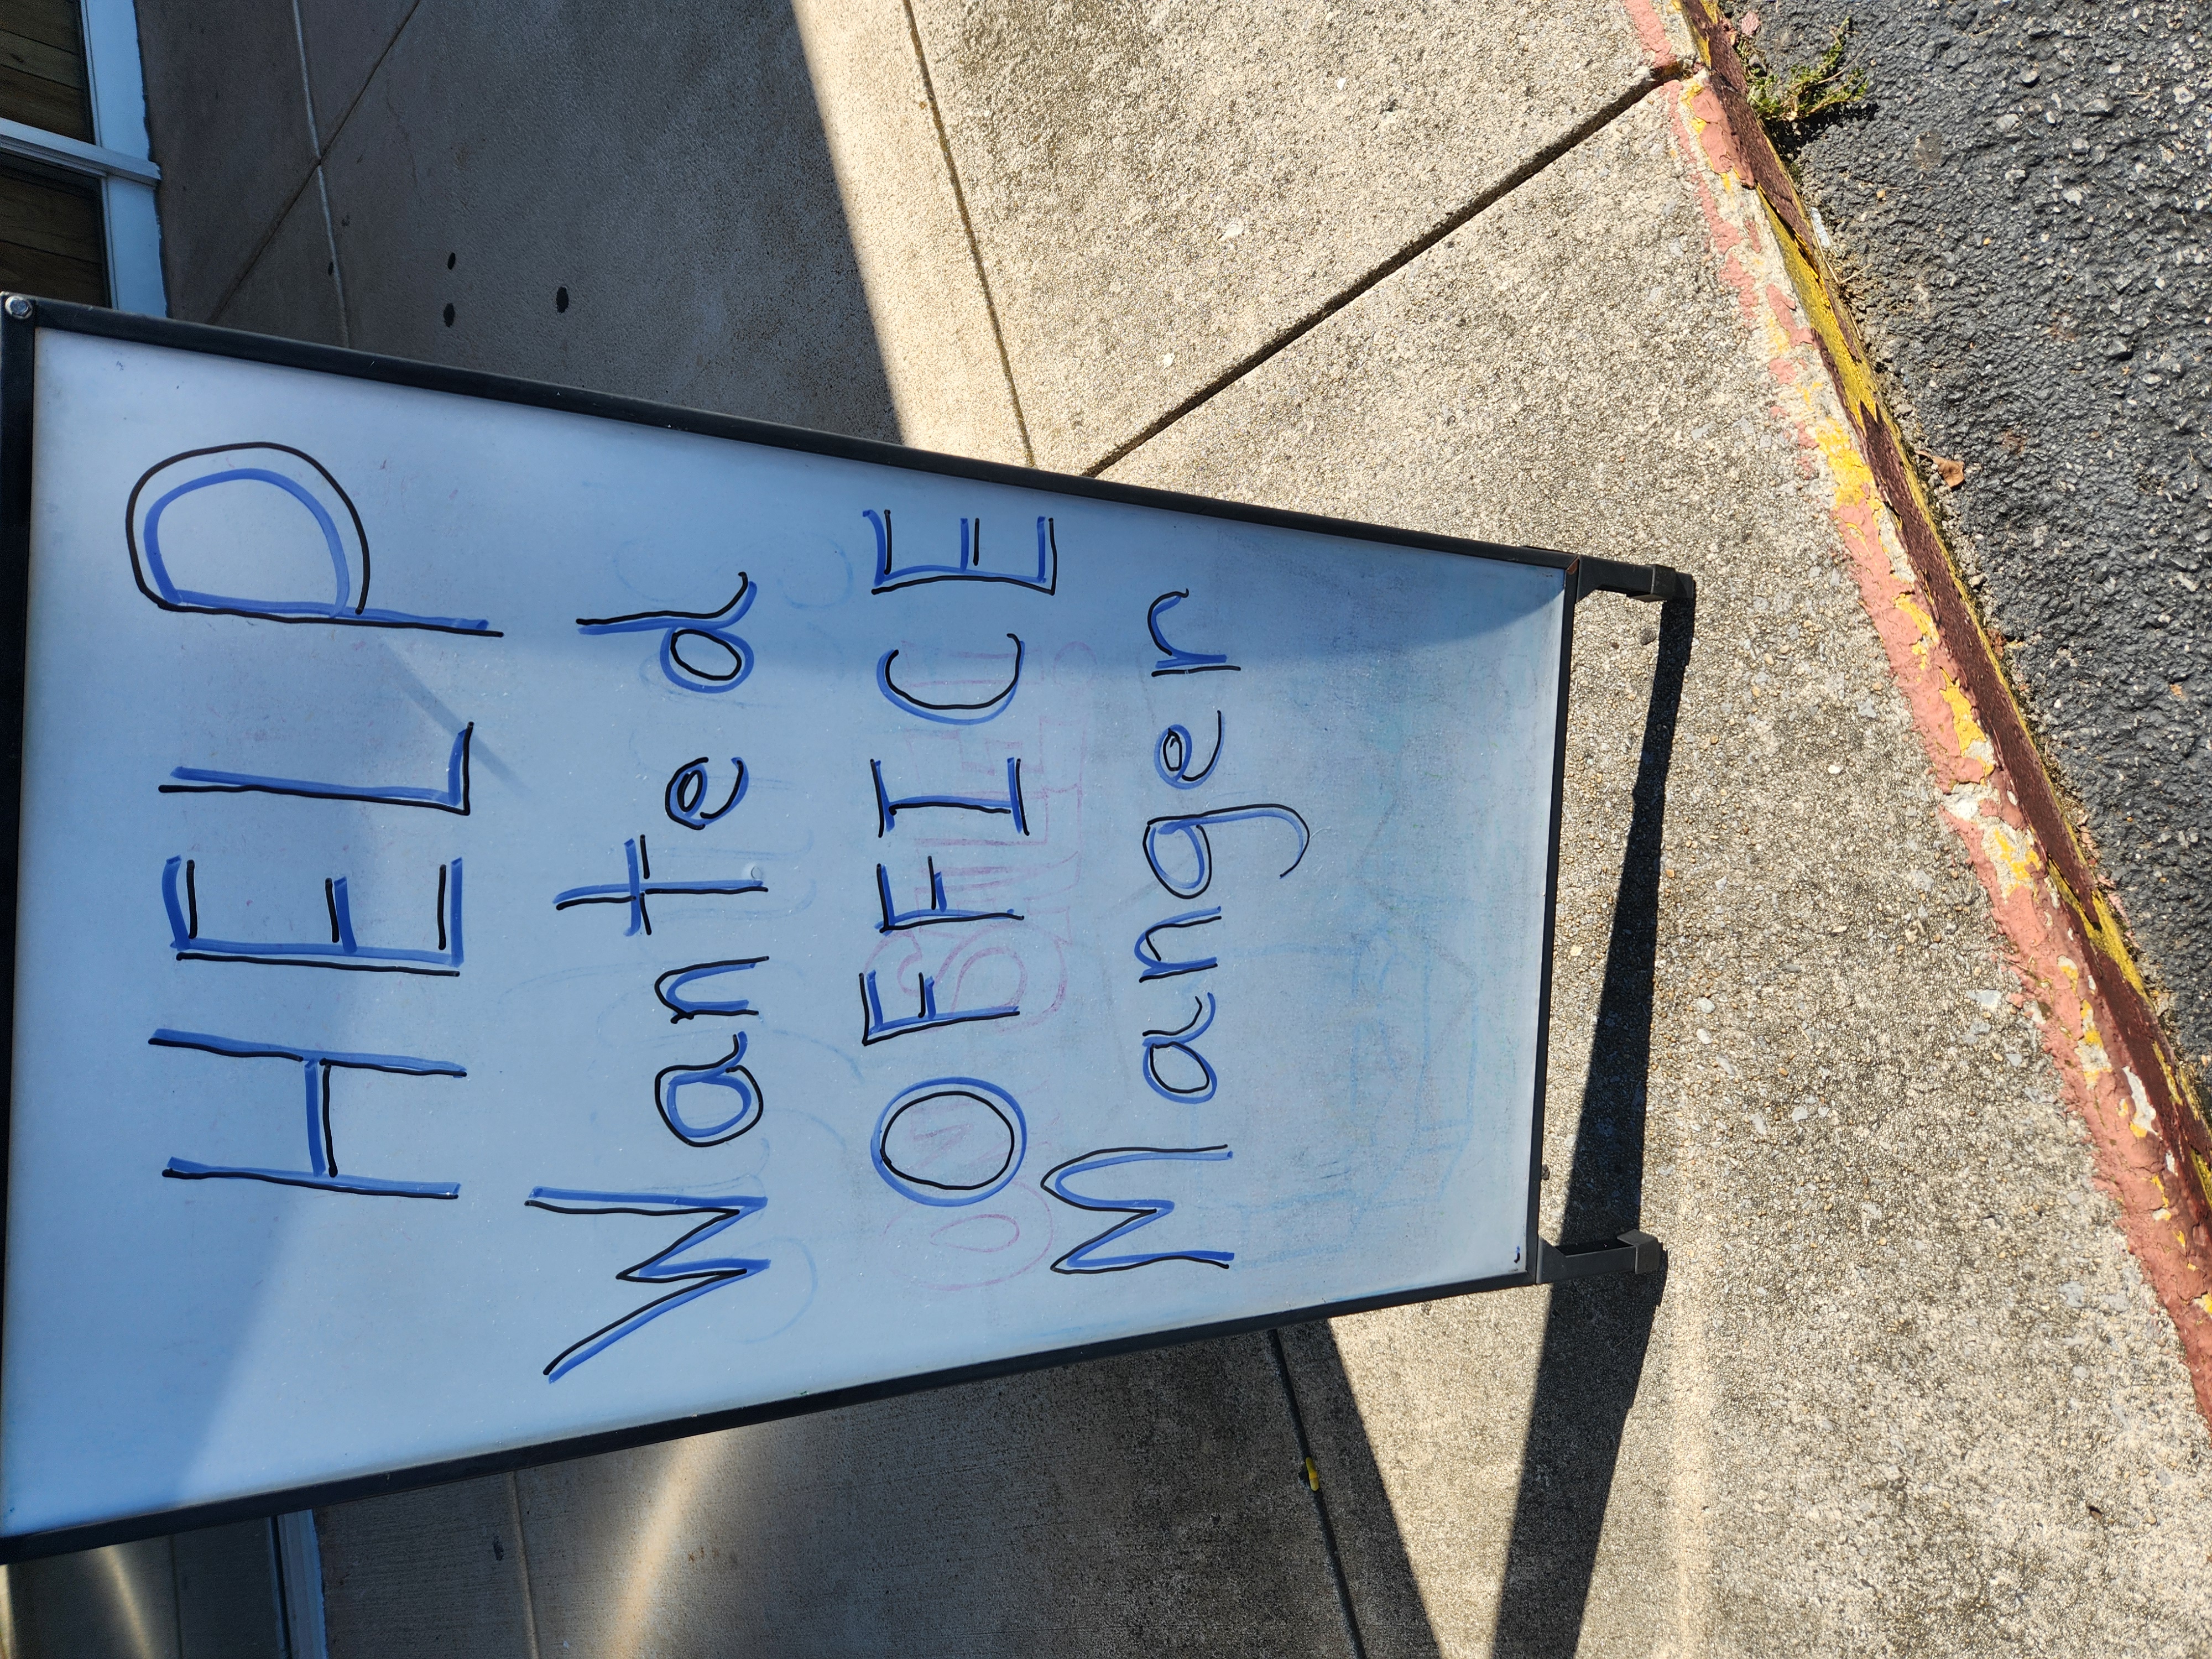 HELP
Wanted
OFFICE
Manger